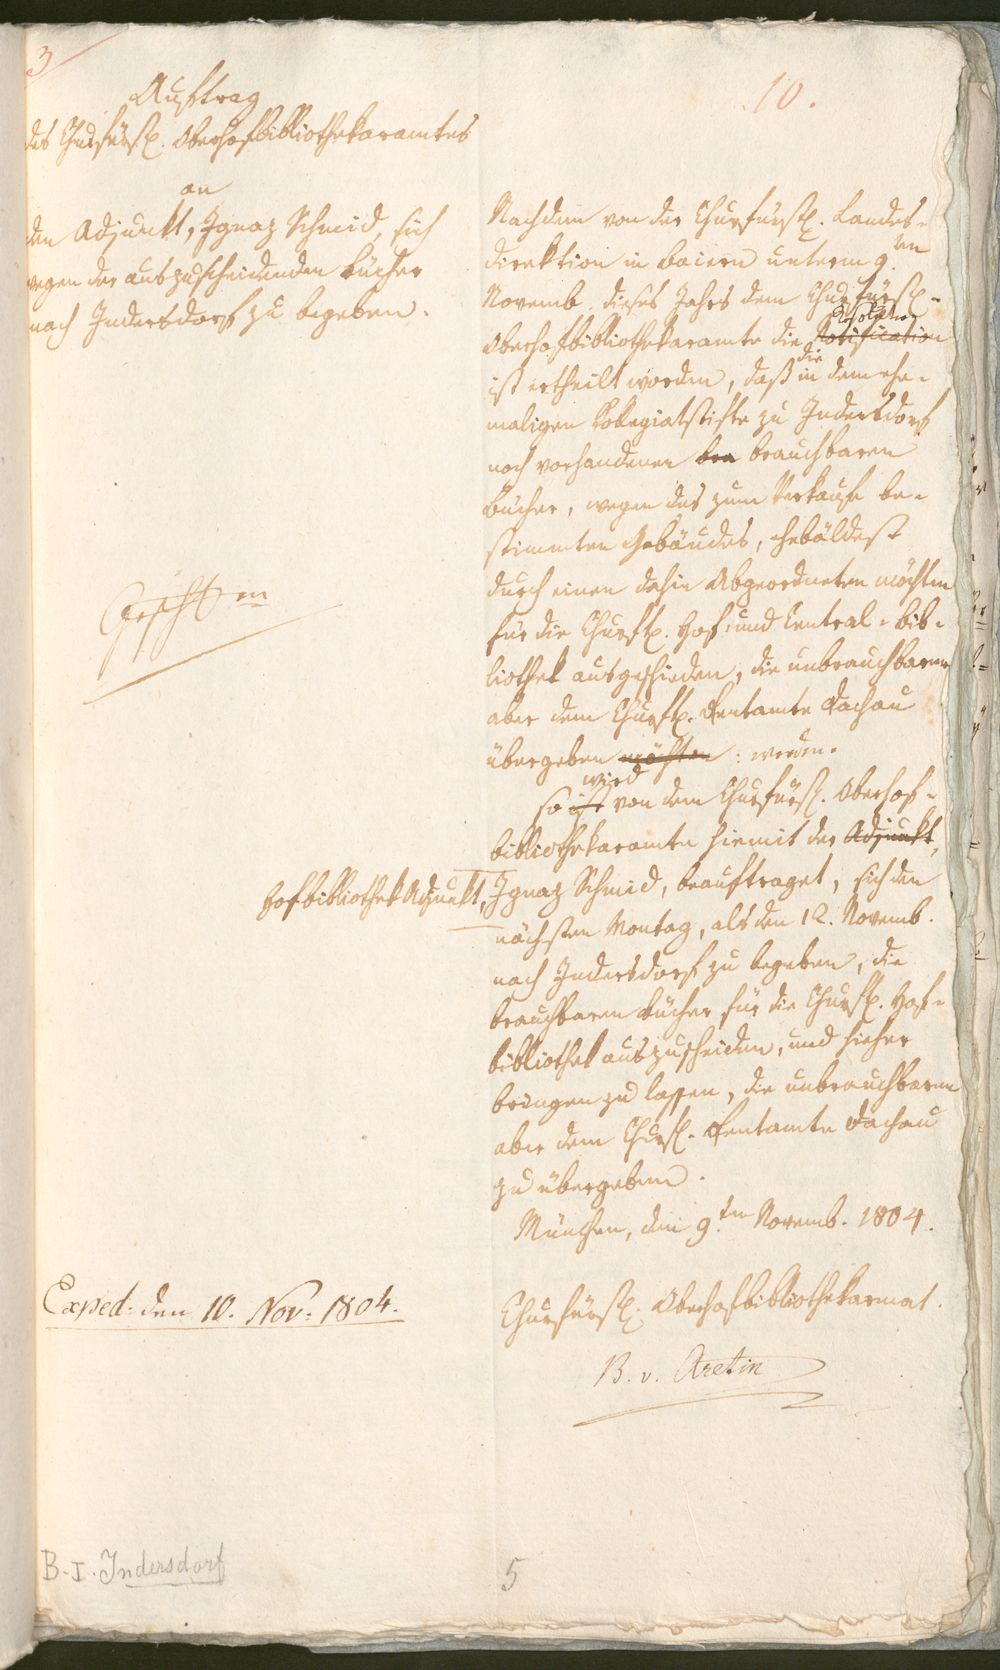 3
10.
Auftrag
des Churfürstl. Oberhofbibliothekaramtes
an
den Adjunkt, Ignaz Schmid, sich
wegen der auszuscheidenden Bücher
nach Indersdorf zu begeben.
Nachdem von der Churfürstl. Landes-
direktion in Baiern unterm 9ten
Novemb. dieses Jahrs dem Churfürstl.
Resolution
Oberhofbibliothekaramte die Notification
die
ist ertheilt worden, daß in dem ehe-
maligen Kollegiatstifte zu Indersdorf
noch vorhandenen bra brauchbaren
Bücher, wegen des zum Verkaufe be-
stimmten Gebäudes, ehebäldest
durch einen dahin Abgeordneten möchten
für die Churftl. Hof- und Central-Bib-
liothek ausgeschieden, die unbrauchbaren
aber dem Churftl. Rentamte Dachau
übergeben möchten: werden.
wird
so ist von dem Churfürstl. Oberhof-
bibliothekaramte hiemit der Adjunkt,
Hofbibliothek Adjunkt, Ignaz Schmid, beauftraget, sich den
nächsten Montag, als den 12. Novemb.
nach Indersdorf zu begeben, die
brauchbaren Bücher für die Churftl. Hof-
bibliothek auszuscheiden, und hieher
bringen zu lassen, die unbrauchbaren
aber dem Churftl. Rentamte Dachau
zu übergeben.
München, den 9ten Novemb. 1804.
Exped: den 10. Nov: 1804.
Churfürstl. Oberhofbibliothekaramt.
B. v. Aretin
B-I. Indersdorf
5